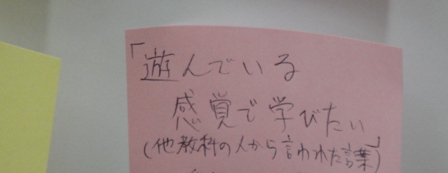 「遊んでいる
感覚で学びたい」
(他教科の人から言われた言葉)